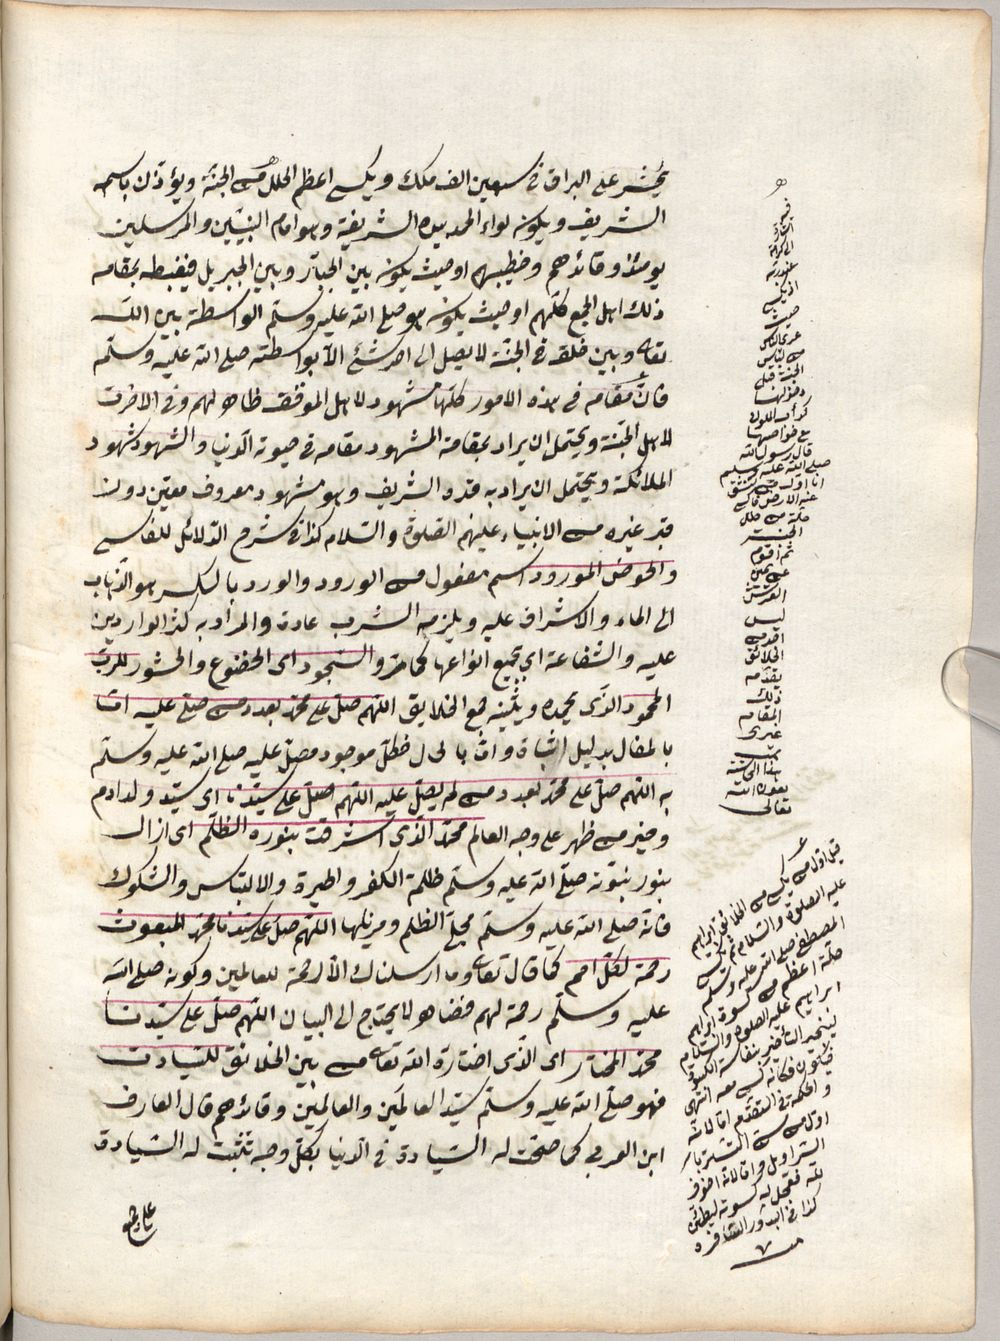 يحشر على البراق في سبعين الف ملك ويكسى اعظم الحلل من الجنة ويؤذن باسمه
الشريف ويكون لواء الحمد بيده الشريفة وهو امام النبيّين والمرسلين
يومئذ وقائدهم وخطيبهم او حيث يكون بين الجبّار وبين الجبريل فيغبطه بمقامه
ذلك اهل الجمع كلّهم او حيث يكون هو صلى الله عليه وسلّم الواسطة بين الله
تعالى وبين خلقه في الجنّة لا يصل الى احد شئ الّا بواسطته صلى الله عليه وسلّم
فانّ مقامه في هذه الامور كلّها مشهود لاهل الموقف ظاهر لهم وفي الاخرت
لاهل الجنّة ويحتمل ان يراد بمقامة المشهود مقامه في حيوة الدّنيا والشهود شهود
الملائكة ويحتمل ان يراد به قدره الشريف وهو مشهود معروف معيّن دون
قدر غيره من الانبياء عليهم الصّلوة والسّلام كذا في شرح الدّلائل للفاسى
والحوض المورود اسم مفعول من الورود والورد بالكسر هو الذّهاب
الى الماء والاشراف عليه ويلزمه الشرب عادة والمراد به كثر الواردين
عليه والشفاعة اي بجميع انواعها كما مرّ والسّجود اى الخضوع والخشوع للربّ
المحمود الّذى يحمده ويثنيه جمع الخلايق اللّهم صلّ على محمّد بعدد من صلّى عليه امّا
بالمقال بدليل اثباته وامّا بالحال فكلّ موجود مصلّ عليه صلى الله عليه وسلّم
به اللّهم صلّ على محمّد بعدد من لم يصلّ عليه اللّهم صلّ على سيّدنا اى سيّد ولد ادم
وخير من ظهر على وجه العالم محمّد الّذى اشرقت بنوره الظّلم اى ازال
بنور نبوّته صلّى الله عليه وسلّم ظلمة الكفر والحيرة والالتباس والشكوك
فانّه صلّى الله عليه وسلّم مجلى الظلم ومزيلها اللّهم صلّ على سيّدنا محمّد المبعوث
رحمة لكلّ امم كما قال تعالى وما ارسلناك الّا رحمة للعالمين وكونه صلى الله
عليه وسلّم رحمة لهم فضاهر لا يحتاج الى البيان اللّهم صلّ على سيّدنا
محمّد المختار اى الّذى اختارة الله تعالى من بين الخلائق للسّيادت
فهو صلّى الله عليه وسلّم سيّد العالمين والعالمين وقائدهم قال العارف
ابن العربي كما صحّت له السّيادة في الدّنيا بكلّ وجه تثبت له السّيادة
على
فيه
اشارة
الى كرامة
حيث
عرى الناس
من لباس
الجنة قبل
دخولها
كدأب الملوك
مع خواصها
قال رسول الله
صلى الله عليه وسلم
انا اول من تنشق
عنه الارض فاكسى
حلة من حلل
الجنة
ثم اقوم
عن يمين
العرش
ليس
احد من
الخلائق
يقوم
ذلك
المقام
غيرى
هذا الحاشية
بعون الله
تعالى
قيل اوّل من يكسى من الخلائق ابراهيم
عليه الصلوة والسلام ثم يكسى
المصطفى صلى الله عليه وسلّم
حلة اعظم من كسوة ابراهيم
ابراهيم عليه الصلوة والسلام
لينجبر التأخير بنفاسة الكسوة
فيكون كأنه كسى معه انتهى
والحكمة في التقدّم امّا لانّه
اوّل من سنّ التستر بالسراويل
وامّا لانه اخوف
لله فعجل له كسوته ليطمئن
كذا في البدور السافرة